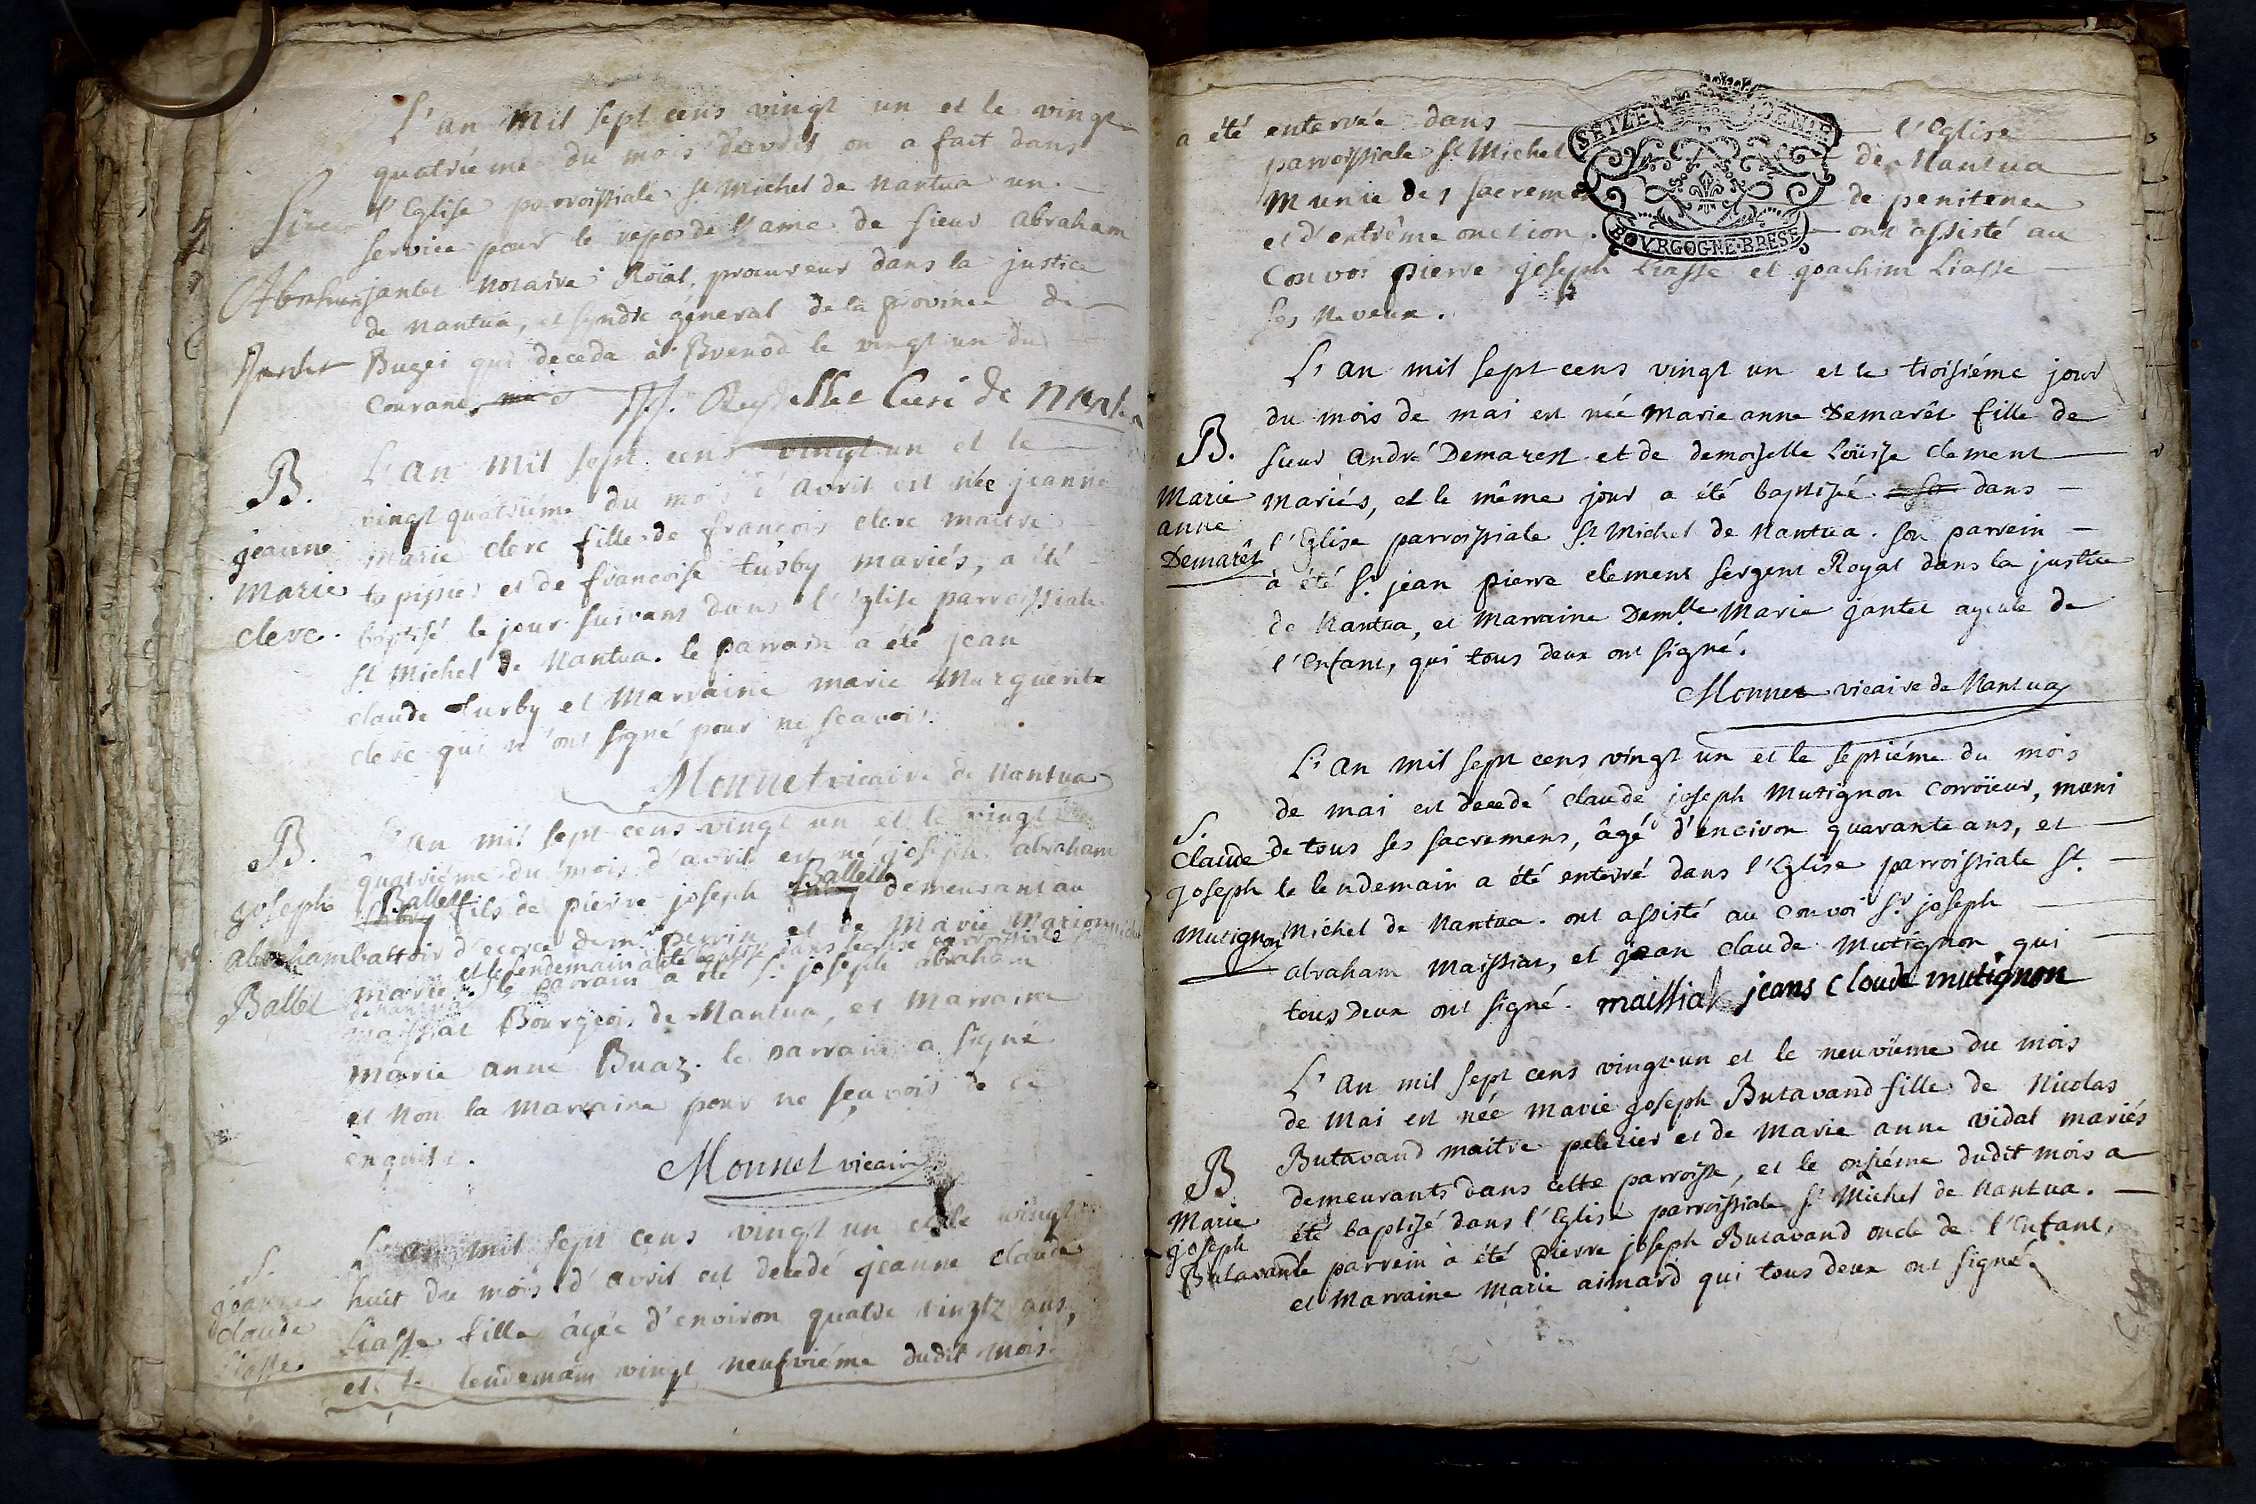 L'an mil sept cens vingt un et le vingt
quatriéme du mois d'avril on a fait dans
l'Eglise parroissiale St Michel de Nantua un
service pour le repos de l'ame de sieur abraham
Abraham
jantet Notaire Roïal, procureur dans la justice
de Nantua, et syndic géneral de la province de
Bugei qui deceda à Brenod le vingt un du
courant.
Curé de Nantua
B.
jeanne
marie
clerc.
L'an mil sept cens vingt un et le
vingt quatriéme du mois d'avril est née jeanne
marie clerc fille de francois clerc maitre
tapissier et de francoise turby mariés, a été
baptisé le jour suivant dans l'Eglise parroissiale
St Michel de Nantua. le parrain a été jean
claude turby et Marraine marie Marguerite
clerc qui n'ont signé pour ne scavoir.
Monnet vicaire de Nantua
B.
joseph
abraham
Ballet
L'an mil sept cens vingt un et le vingt
quatriéme du mois d'avril est né joseph abraham
Ballet fils de pierre joseph Ballet demeurant au
battoir d'ecorce de mr perrin et de Marie Marion
et le lendemain a été baptisé dans l'eglise parroissiale
mariés. le parrain a été Sr joseph abraham
de Nantua
maissiat Bourgeois de Nantua, et Marraine
marie anne Buaz. le parrain a signé
et non la Marraine pour ne sçavoir de ce
enquise.
Monnet vicaire
S.
jeanne
claude
Liasse
L'an mil sept cens vingt un et le vingt
huit du mois d'avril est decedé jeanne claude
Liasse fille âgée d'environ quatre vingtz ans,
et le lendemain vingt neufviéme dudit mois
a été enterrée dans l'Eglise
parroissiale St Michel de Nantua
Munie des sacremens de penitence
et d'extrême onction. ont assisté au
Convoi pierre joseph Liasse et joachim Liasse
ses Neveux.
BOVRGOGNE·BRESE
B.
Marie
anne
Demarêt
L'an mil sept cens vingt un et le troisiéme jour
du mois de mai est née Marie anne Demarêt fille de
sieur André Demarest et de demoiselle Loüise clement
mariés, et le même jour a été baptisée dans
l'Eglise parroissiale St Michel de Nantua. son parrein
à été Sr jean pierre clement sergent Royal dans la justice
de Nantua, et Marraine Demlle Marie jantet ayeule de
l'Enfant, qui tous deux ont signé.
Monnet vicaire de Nantua
S.
Claude
joseph
Mutignon
L'an mil sept cens vingt un et le septiéme du mois
de mai est decedé claude joseph Mutignon corroïeur, muni
de tous ses sacremens, âgé d'environ quarante ans, et
le lendemain a été enterré dans l'Eglise parroissiale St
Michel de Nantua. ont assisté au convoi Sr joseph
abraham Maissiat, et jean claude Mutignon qui
tous deux ont signé. maissiat jeans cloude mutignon
B
Marie
joseph
Butavand
L'an mil sept cens vingt un et le neuviéme du mois
de Mai est née marie joseph Butavand fille de Nicolas
Butavand maitre peletier et de Marie anne vidal mariés
demeurants dans cette parroisse, et le onsiéme dudit mois a
été baptisé dans l'Eglise parroissiale St Michel de Nantua.
le parrein à été pierre joseph Butavand oncle de l'Enfant,
et Marraine Marie aimard qui tous deux ont signé.